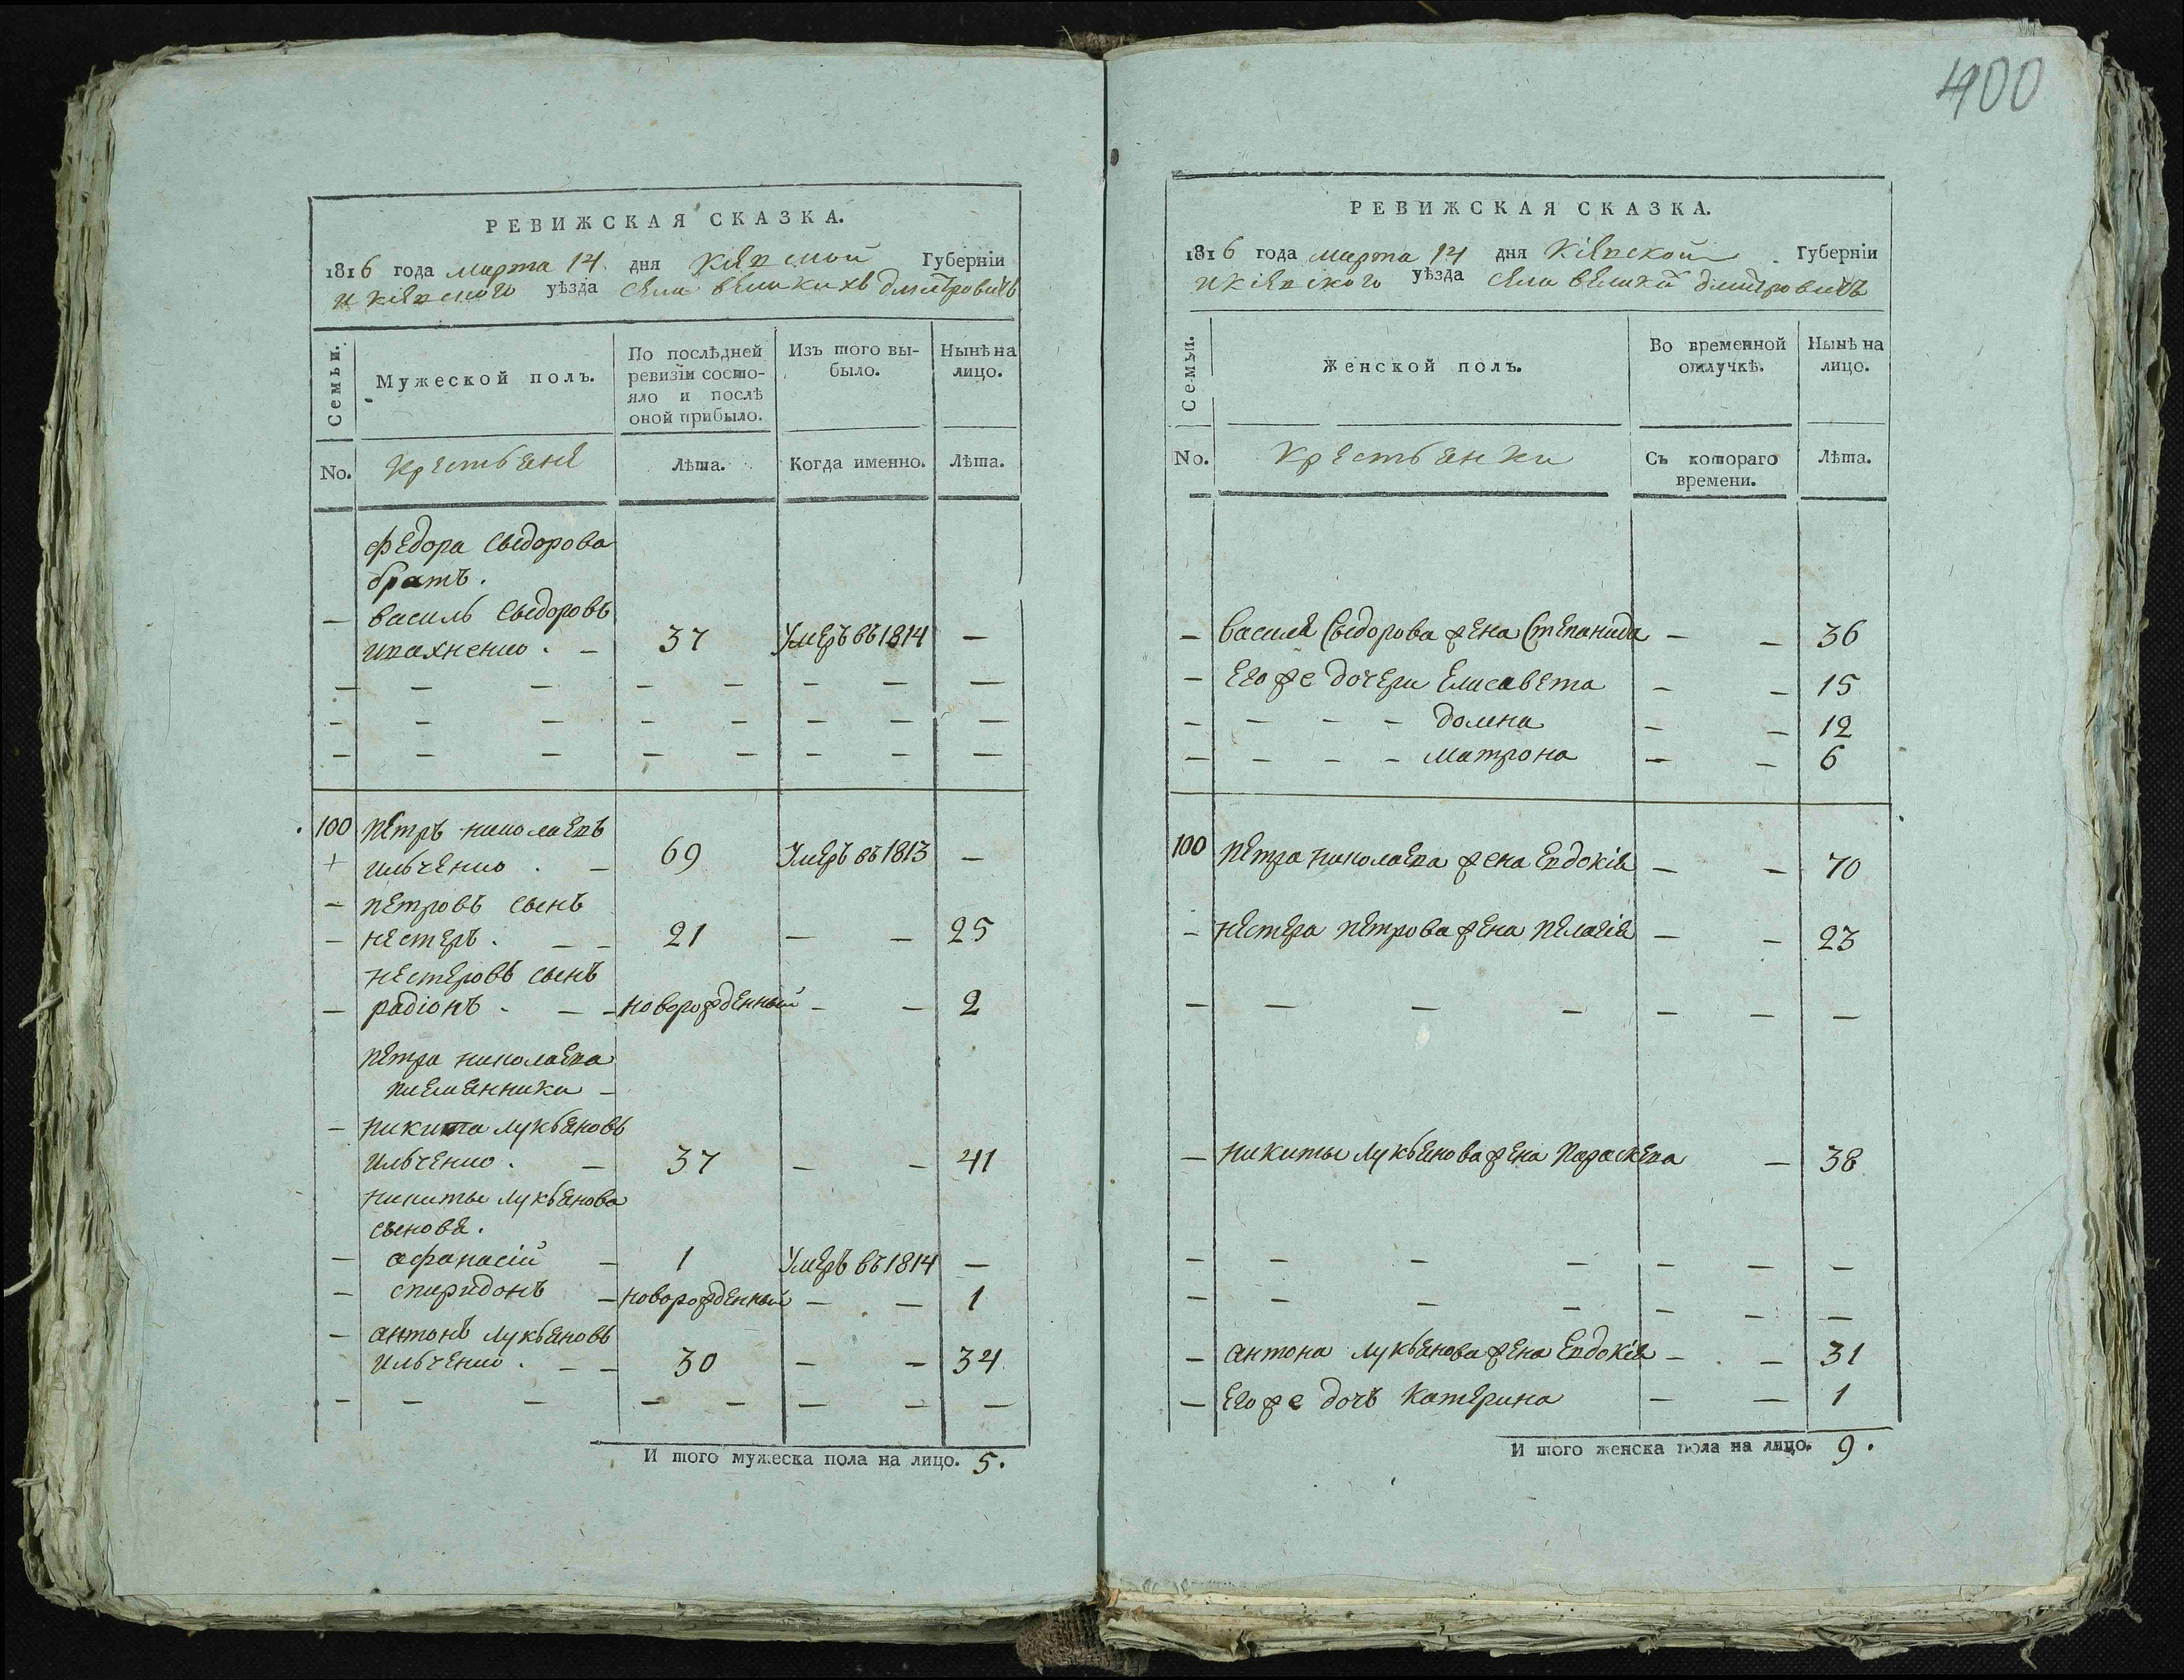 РЕВИЖСКАЯ СКАЗКА.
1816 года марта 14. дня Кіевской Губерніи
и кіевского уѣзда села великихъ дмитровичь
Семьи.
Мужеской полъ.
По послѣдней
ревизіи состо-
яло и послѣ
оной прибыло.
Изъ того вы-
было.
Нынѣ на
лицо.
No. Крестьяне Лѣта. Когда именно. Лѣта.
федора сыдорова
братъ.
— василь сыдоровъ
— 37 Умеръ въ 1814 —
— — — — — — — —
— — — — — — — —
— — — — — — — —
100 петръ николаевъ
+ ильченко . — 69 Умеръ въ 1813 —
— петровъ сынъ
— нестеръ . — — 21 — — 25
нестеровъ сынъ
— радіонъ . — — новорожденный — — 2
петра николаева
племянники —
— никита лукьяновъ
ильченко . — 37 — — 41
никиты лукьянова
сыновя.
— афанасій — 1 Умеръ въ 1814 —
— спиридонъ — новорожденный — — 1
— антонъ лукьяновъ
ильченко . — — 30 — — 34
— — — — — — — —
И того мужеска пола на лицо. 5.
400
РЕВИЖСКАЯ СКАЗКА.
1816 года марта 14 дня Кіевской Губерніи
и кіевского уѣзда села великих дмитровичь
Семьи.
Женской полъ.
Во временной
отлучкѣ.
Нынѣ на
лицо.
No. Крестьянки Съ котораго
времени. Лѣта.
— василя Сыдорова жена Степанида — — 36
— Его же дочери Елисавета — — 15
— — — — домна — — 12
— — — — матрона — — 6
100 петра николаева жена Евдокія — — 70
— нестера петрова жена пелагія — — 23
— — — — — — —
— никиты лукьянова жена параскева — 38
— — — — — — —
— — — — — — —
— антона лукьянова жена Евдокія — — 31
— Его же дочь катерина — — 1
И того женска пола на лицо. 9.